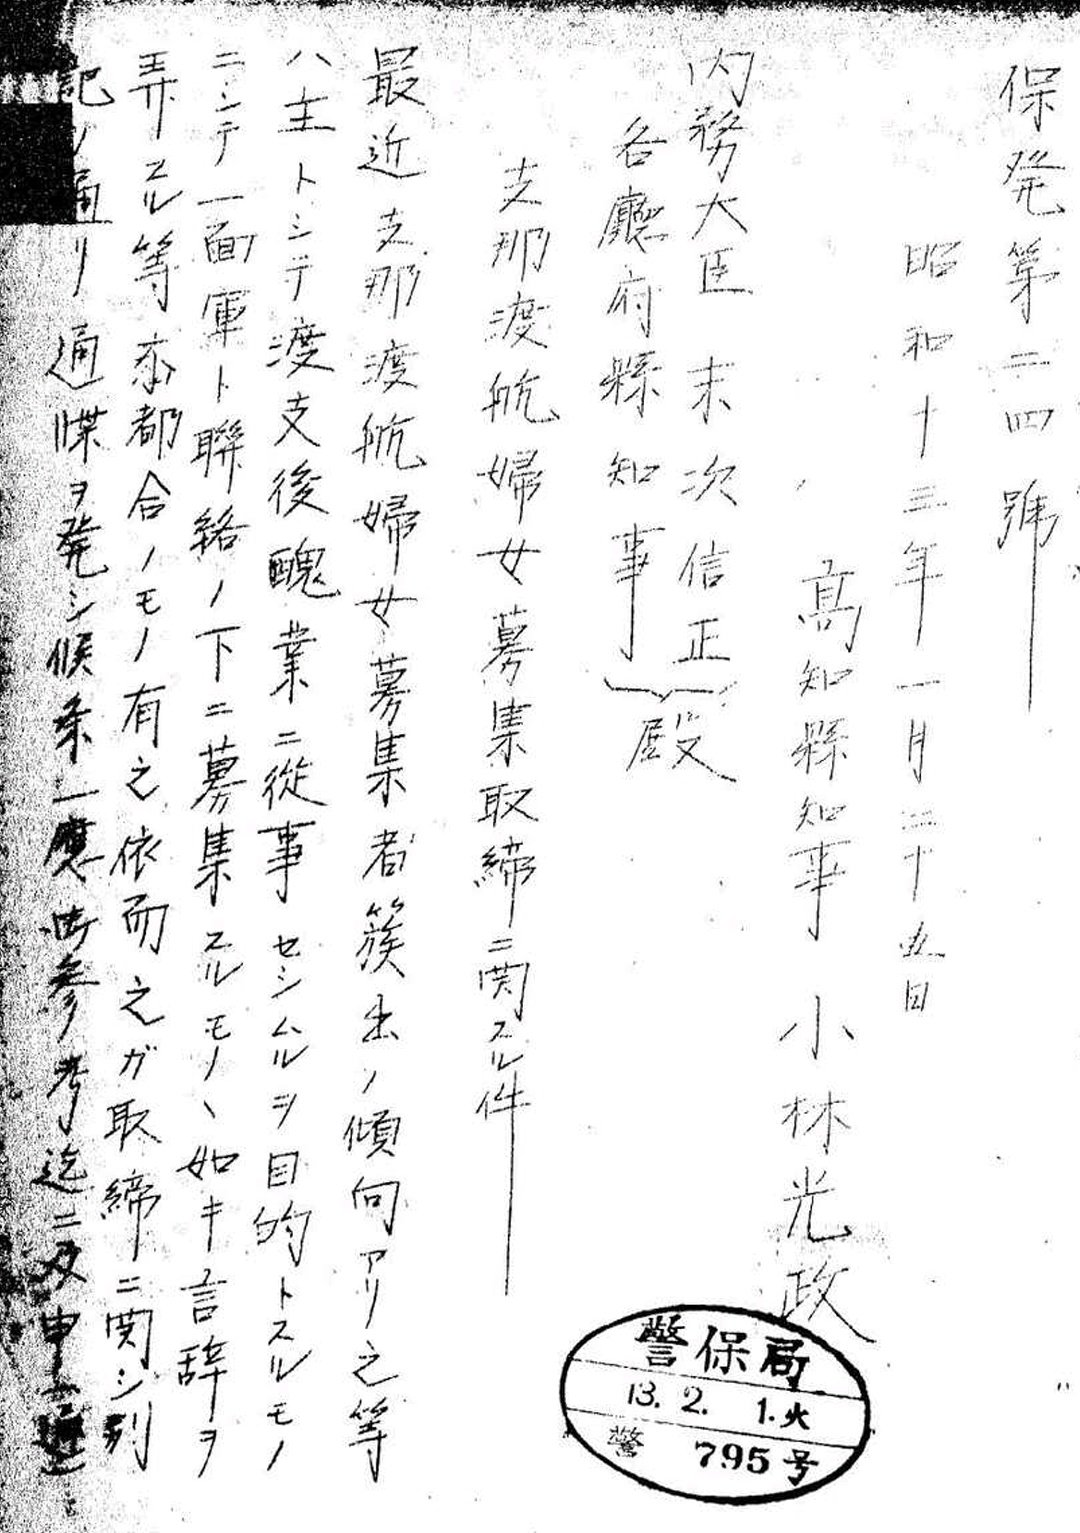 保発第二四號
昭和十三年一月二十五日
高知縣知事 小林光政
内務大臣 末次信正
各廳府縣知事
殿
支那渡航婦女募集取締ニ関スル件
最近支那渡航婦女募集者簇出ノ傾向アリ之等
ハ主トシテ渡支後醜業ニ從事セシムルヲ目的トスルモノ
ニシテ一面軍ト聯絡ノ下ニ募集スルモノヽ如キ言辞ヲ
弄スル等不都合ノモノ有之依而之ガ取締ニ関シ別
記ノ通リ通牒ヲ発シ候条一應御参考迄ニ及申
警保局
13. 2. 1. 火
警 795号